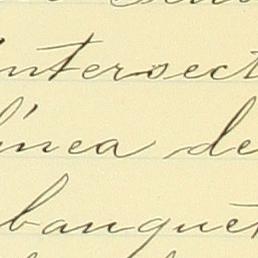 intersect
línea de
banquet